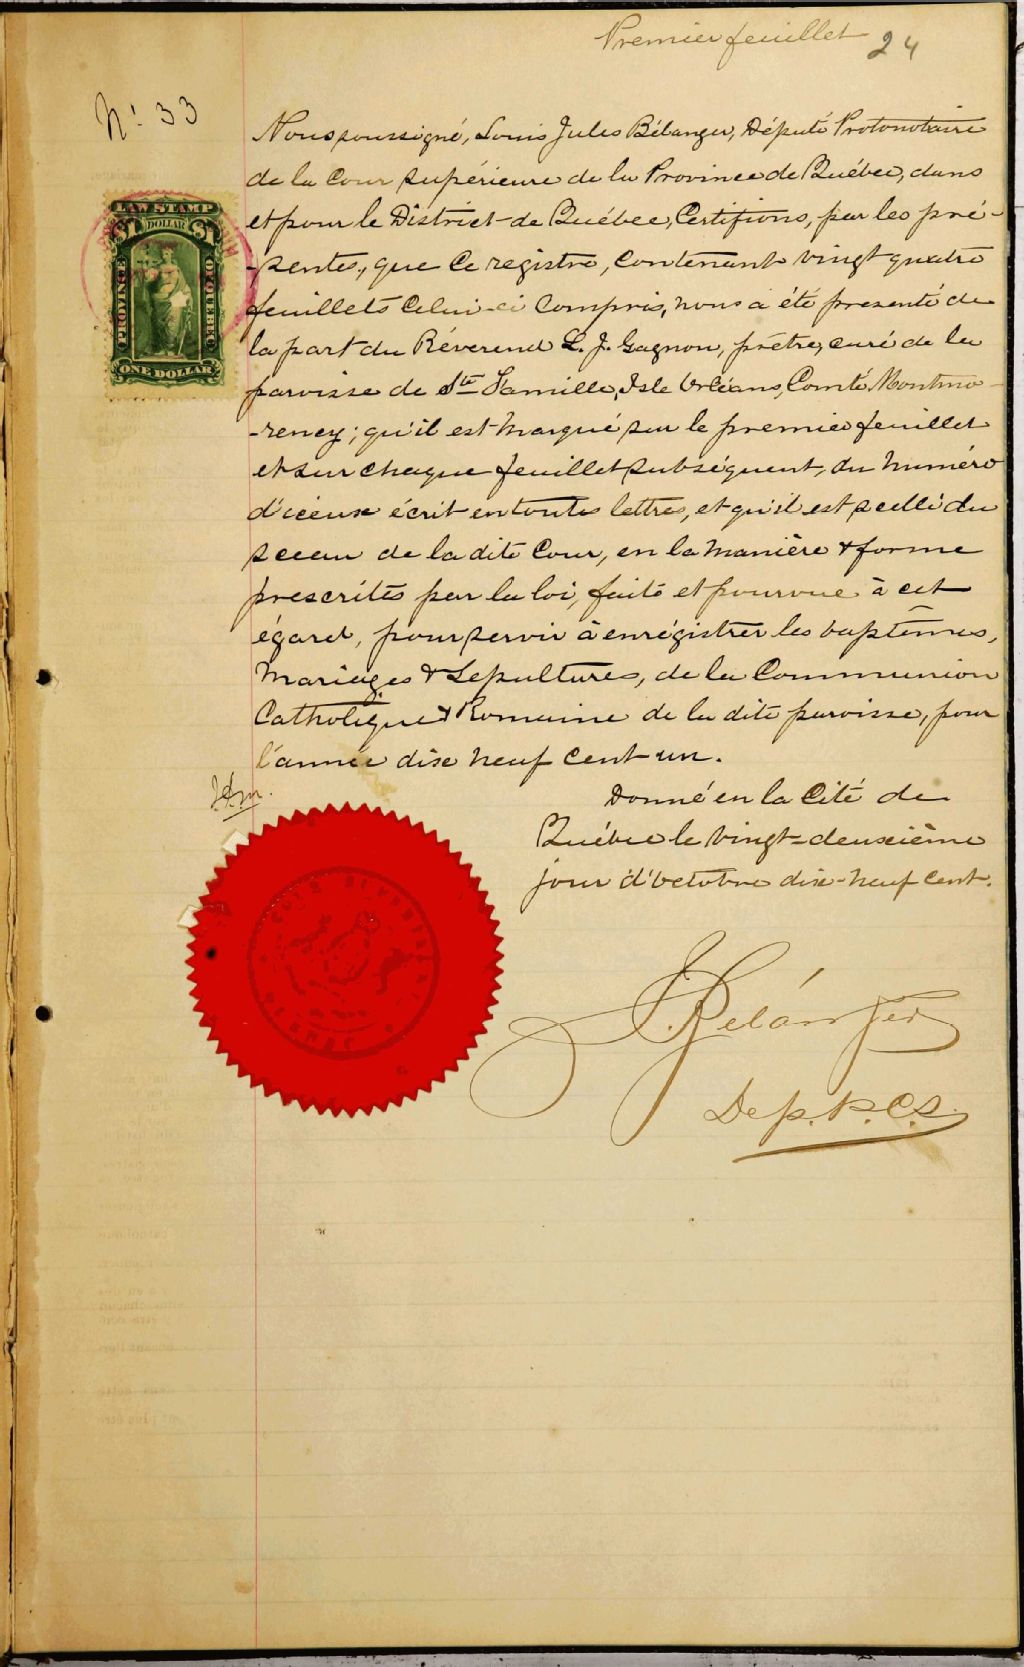 Premier feuillet 24
N: 33
Nous soussigné, Louis Jules Bélanger, Député Protonotaire
de la Cour supérieure de la Province de Québec, dans
et pour le District de Québec, Certifions, par les pré-
-sentes, que ce registre, contenant vingt quatre
feuillets celui-ci compris, nous a été presenté de
la part du Réverend L. J. Gagnon, prêtre, curé de la
paroisse de Ste Famille, Isle Orléans, Comté Montmo-
-rency; qu'il est marqué sur le premier feuillet
et sur chaque feuillet subséquent, du numéro
d'iceux écrit en toutes lettres, et qu'il est scellé du
sceau de la dite Cour, en la manière & forme
prescrites par la loi, faite et pourvue à cet
égard, pour servir à enrégistrer les baptêmes,
Mariages & Sepultures, de la Communion
Catholique & Romaine de la dite paroisse, pour
l'année dix neuf cent un.
Donné en la Cité de
Québec le vingt-deuxième
jour d'octobre dix-neuf cent.
J. Bélanger
Dep. P. C. S.
LAW STAMP
$1 DOLLAR $1
PROVINCE
OF QUEBEC
ONE DOLLAR